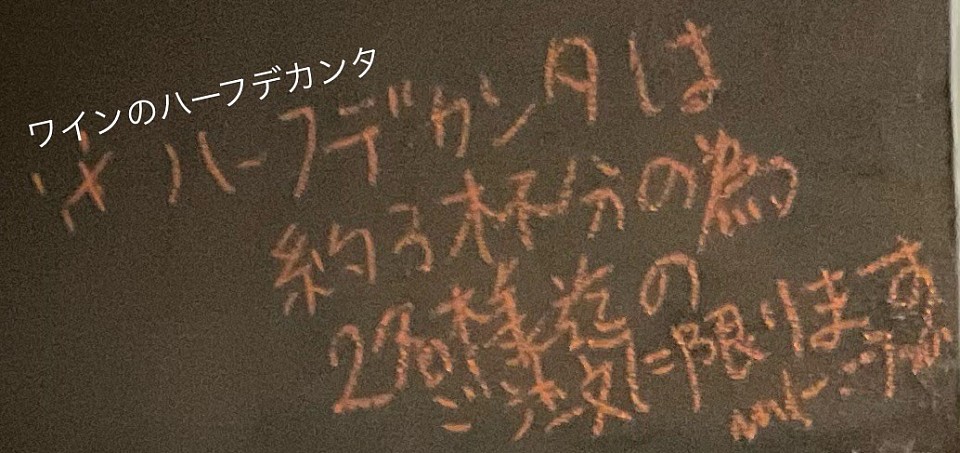 ワインのハーフデカンタ
※ハーフデカンタは
約3杯分の為
2名様迄の
ご注文に限ります